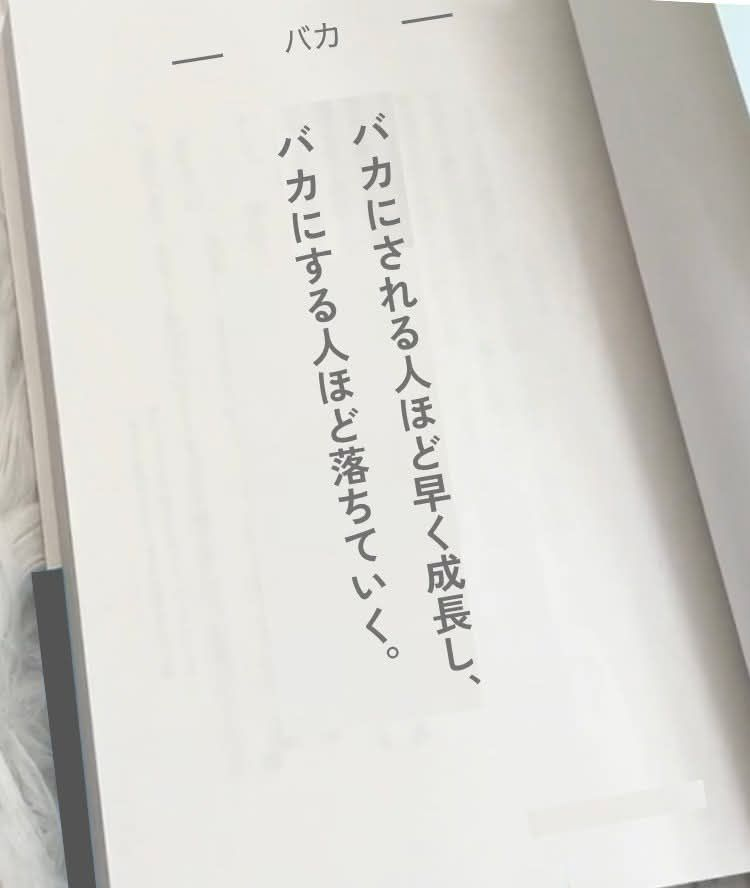 バカ
バカにされる人ほど早く成長し、
バカにする人ほど落ちていく。